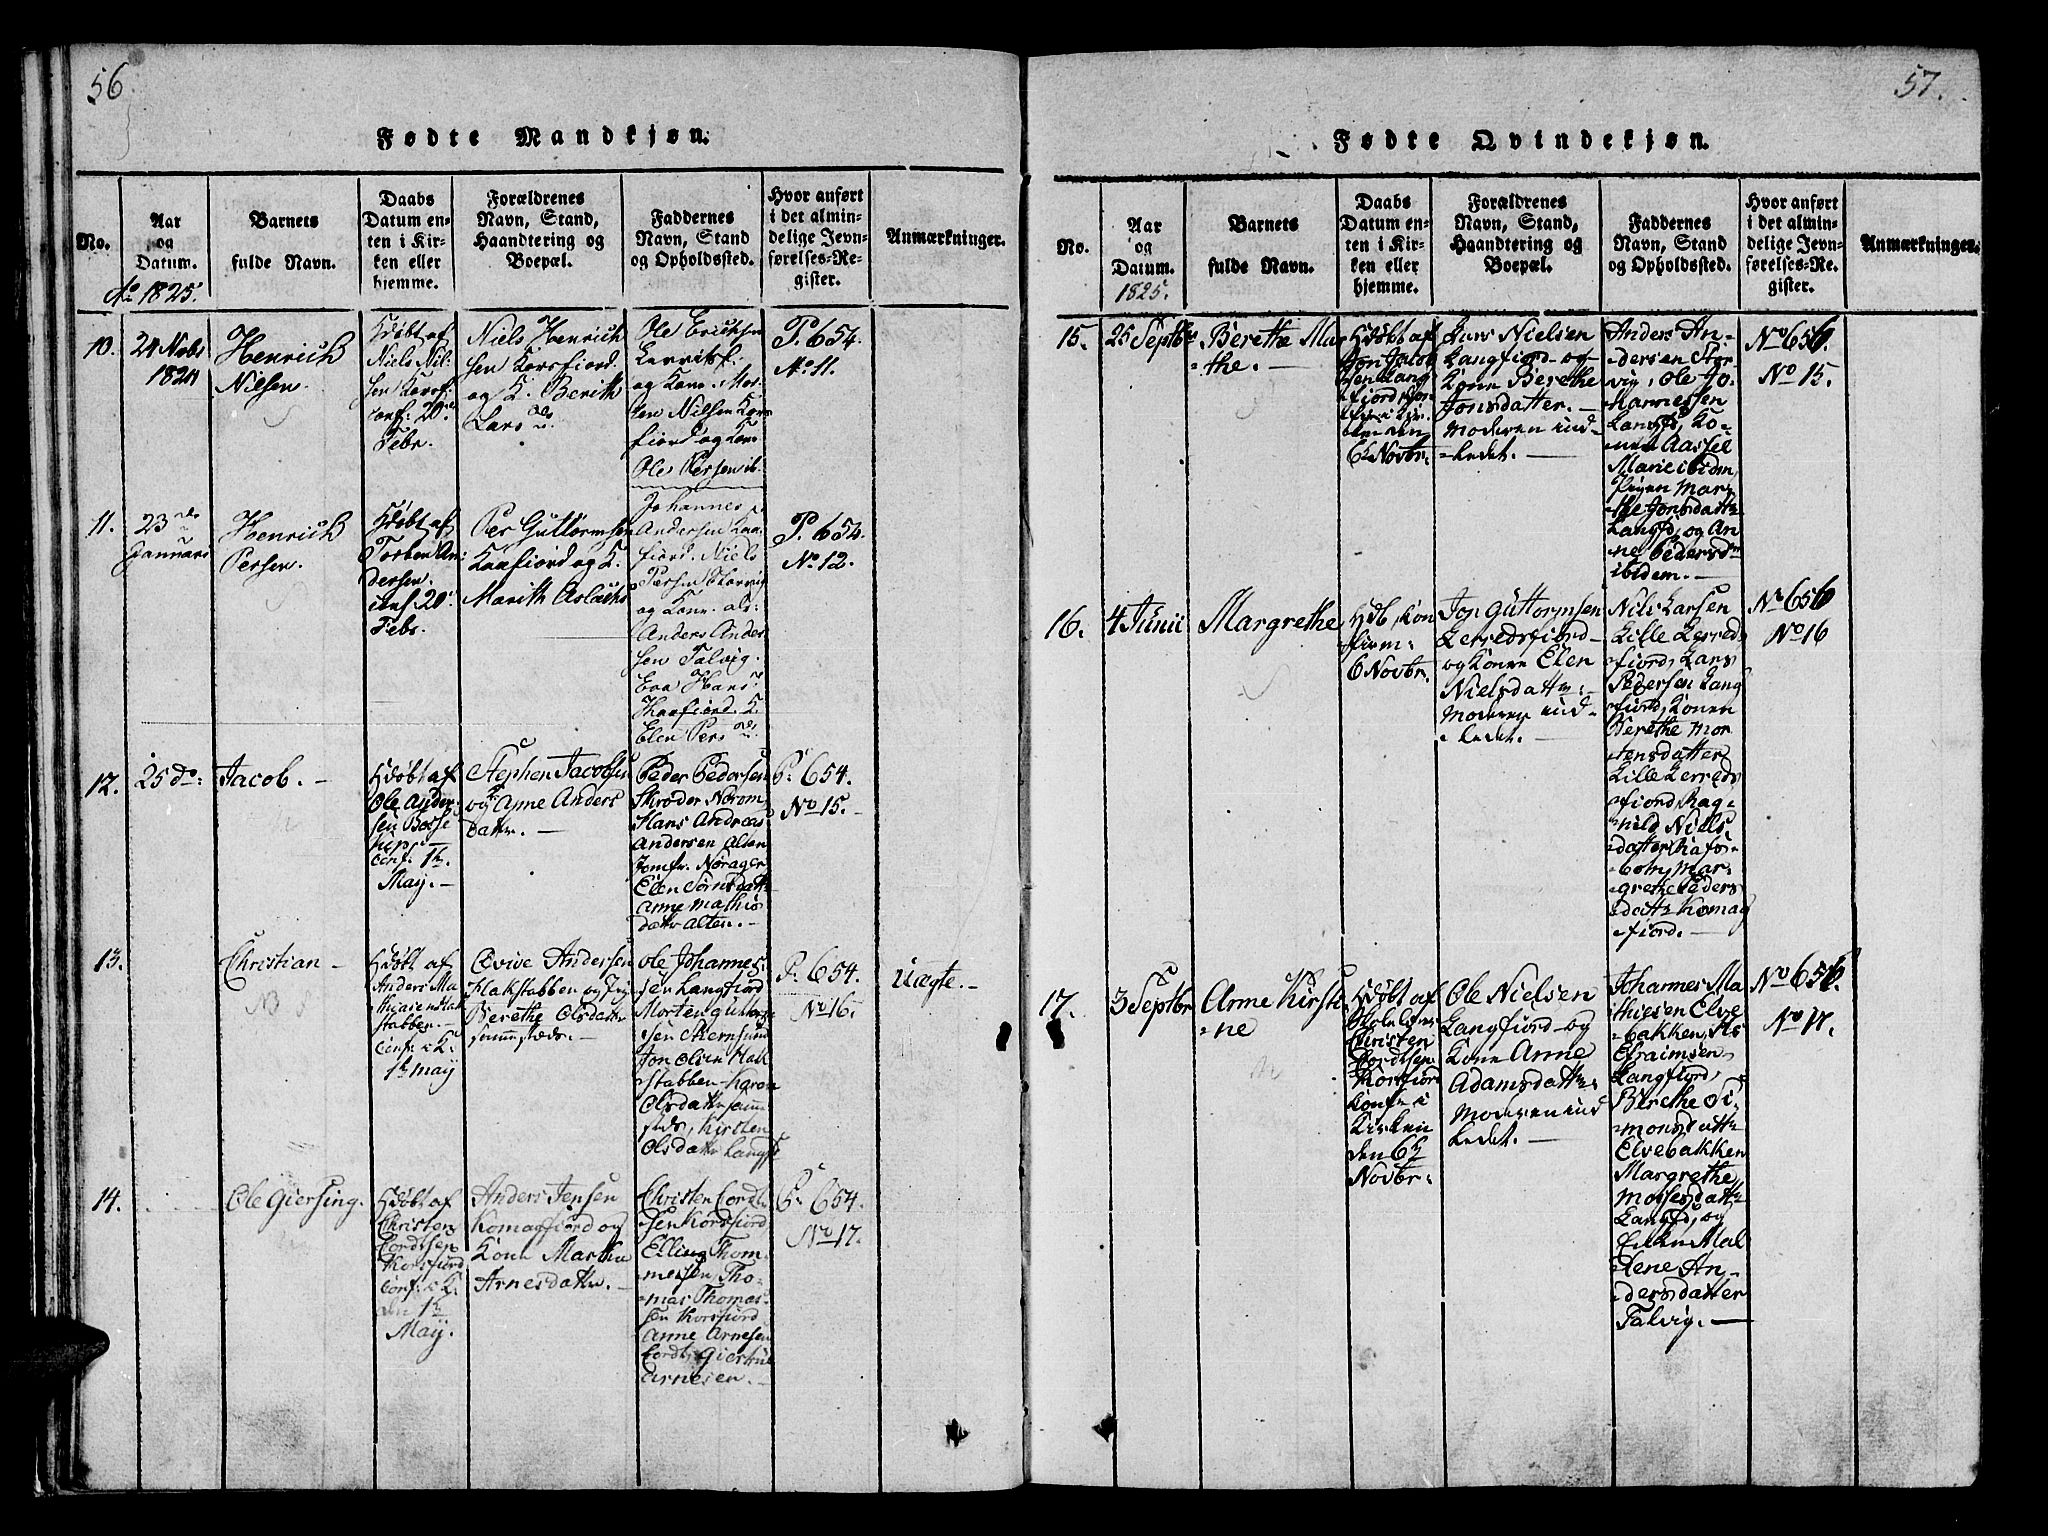 56
Fødte Mandkjøn.
No.
Aar
og
Datum.
Aº 1825.
Barnets
fulde Navn.
Daabs
Datum en-
ten i Kir-
ken eller
hjemme.
Forældrenes
Navn, Stand,
Haandtering og
Boepæl.
Faddernes
Navn, Stand
og Opholdssted.
Hvor anført
i det almin-
delige Jevn-
førelses-Re-
gister.
Anmærkninger.
10.
24 Novbr
1824
Henrich
Nilsen.
Hdøbt af
Niels Nil-
sen Korsf.
conf: 20de
Febr.
Niels Henrich
sen Korsfiord.
og K. Berith
Lars
Ole Ericksen
Lerritsf.
og Kone. Mor-
ten Nilsen Kors
fiord og Kone
Ole Persen ib.
P. 654.
No 11.
11.
23
Januari
Henrich
Persen.
Hdøbt af
Torben An
dersen.
conf. 20.
Febr.
Per Guttormsen
Kaafiord og K.
Marith Aslachs
Johannes
Andersen Kaa-
fiord. Niels
Persen Storvig
og Kone.
Anders Ander
sen Talvig.
Eva Hans
Kaafiord. K.
Elen Pers
P. 654.
No. 12.
12.
25 do:
Jacob. -
Hdøbt af
Ole Ander-
sen Bosse
kop
conf: 1te
May. -
Stephen Jacobsen
og K. Anne Anders
datter. -
Peder Pedersen
Skrøder
Hans Andreas
Andersen Alten
Jomfr. Norager
Elen Sørnsdattr
Anne Mathis
datter Alten. -
P. 654.
No 15. -
13.
Christian -
Hdøbt af
Anders Ma
thiasen Flak
stabben -
conf. i K.
1te may
Andersen
Flakstabben og Pig
Berethe Olsdatter
sammesteds. -
Ole Johannes
sen Langfiord
Morten Guttorm
sen Stiernsund
Jon Olsen Flak
stabben - Karen
Olsdatter samme
steds, Kirsten
Olsdatter Langf:
P. 654.
No 16.
Uægte. -
14.
Ole Giersing.
Hdøbt af
Christen
Cordtsen
Korsfiord
conf. i K.
den 1te
May.
Anders Jensen
Komagfiord og
Kone Marthe
Arnesdatter. -
Christen Cordt-
sen Korsfiord
Elling Thom-
mesen Tho-
mas Thomas-
sen Korsfiord
Anne Arnesen
Cordts,
Arnesen. -
P. 654.
No 17.
57.
Fødte Qvindekjøn.
No.
Aar
og
Datum.
1825.
Barnets
fulde Navn.
Daabs
Datum en-
ten i Kir-
ken eller
hjemme.
Forældrenes
Navn, Stand,
Haandtering og
Boepæl.
Faddernes
Navn, Stand
og Opholdssted.
Hvor anført
i det almin-
delige Jevn-
førelses-Re-
gister.
Anmærkninger.
15.
25 Septbr
Berethe Mar
-the. -
Hdøbt af
Jon Jacob
sen Lang
fiord, kon-
firm: i Kir-
ken den
6te Novbr:
Lars Nielsen
Langfiord og
Kone Berethe
Jonsdatter. -
Moderen ind-
-ledet. -
Anders An-
dersen Stor-
vig, Ole Jo-
hannessen
Langfd, Ko-
nen Aassel
Marie ibidem,
Pigen Mar-
the Jonsdattr
Langfd, og An-
ne Pedersdtr
ibidem. -
No 656.
No 15.
16.
4 Junii
Margrethe
Hdb, kon
firm:
6 Novbr.
Jon Guttormsen
Lerredsfiord
og Konen Elen
Nielsdattr: -
Moderen ind-
-ledet. -
Nils Larsen
Lille Lerreds
-fiord, Lars
Pedersen Lang
fiord, Konen
Berethe Mor
tensdatter
Lille Lerreds
fiord, Rag-
-nild Niels
datter Kafis-
-botn, Mar-
grethe Peders
dattr Komag
fiord. -
No 656
No 16
17.
3 Septbr
Anne Kirsti
-ne
Hdøbt af
Skolelær
Christen
Cordtsen
Korsfiord
konf. i
Kirken
den 6te
Novbr:
Ole Nielsen
Langfiord og
Kone Anne
Adamsdattr.
Moderen ind
ledet. -
Johannes Ma
thiesen Elve
-bakken,
Efraimsen
Langfiord,
Berethe Si-
monsdattr
Elvebakken
Margrethe
Mossesdattr
Langfd, og
Enken Mal
-ene An-
dersdatter
Talvig. -
No 656.
No 17.